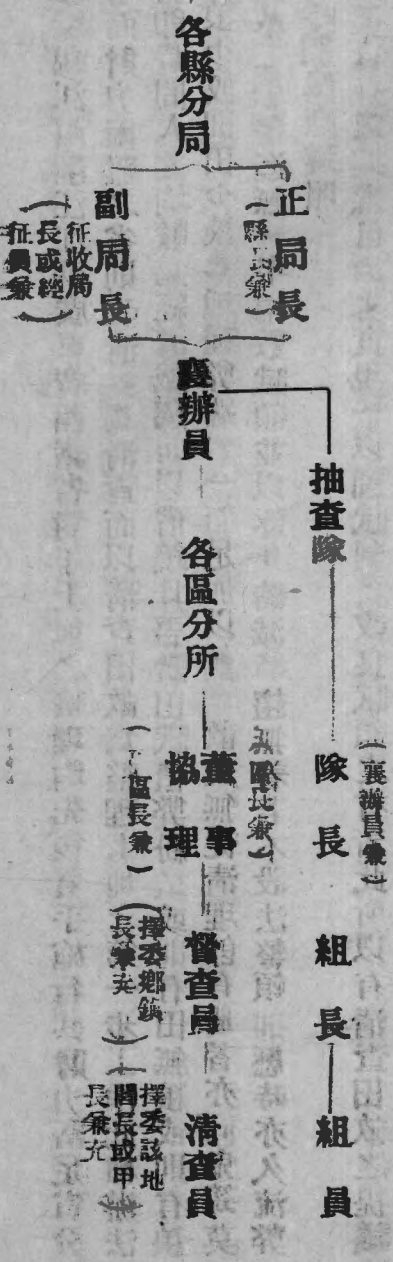 各縣分局
正局長
（縣長兼）
副局長
（征收局
長或經
征員兼）
襄辦員
抽查隊
隊長
（襄辦員兼）
組長
組員
各區分所
董事
協理
（區長兼）
督查員
（擇委鄉鎮
長兼充）
清查員
（擇委該地
閭長或甲
長兼充）